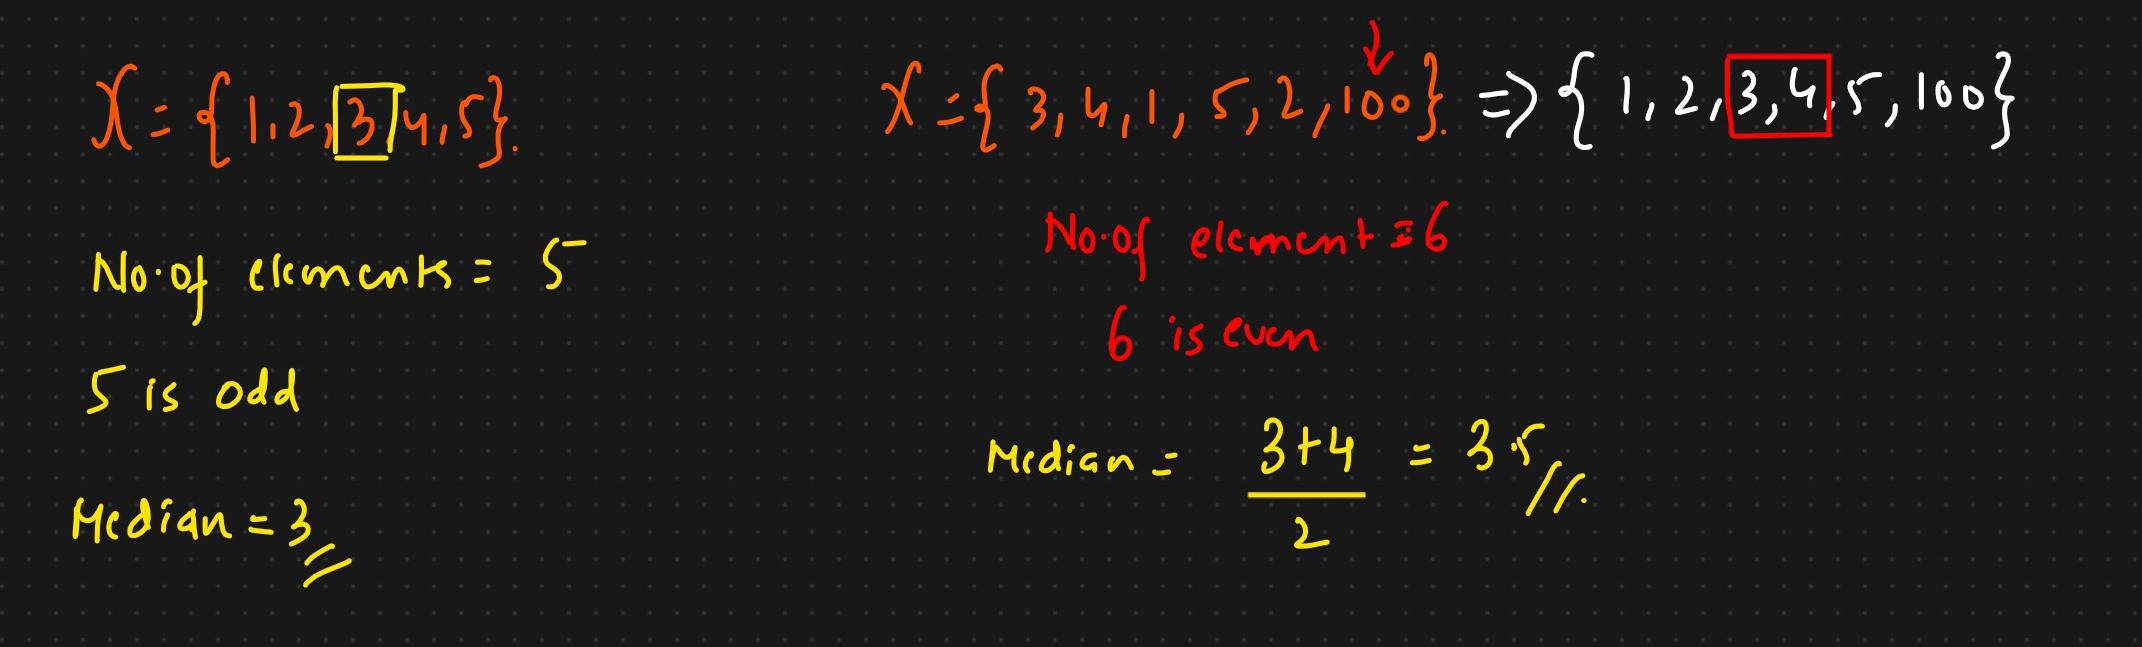 X = {1,2,3,4,5}.
No.of elements = 5
5 is odd
Median = 3
X = {3,4,1,5,2,100}. => {1,2,3,4,5,100}
No.of element = 6
6 is even
Median = 3+4 / 2 = 3.5